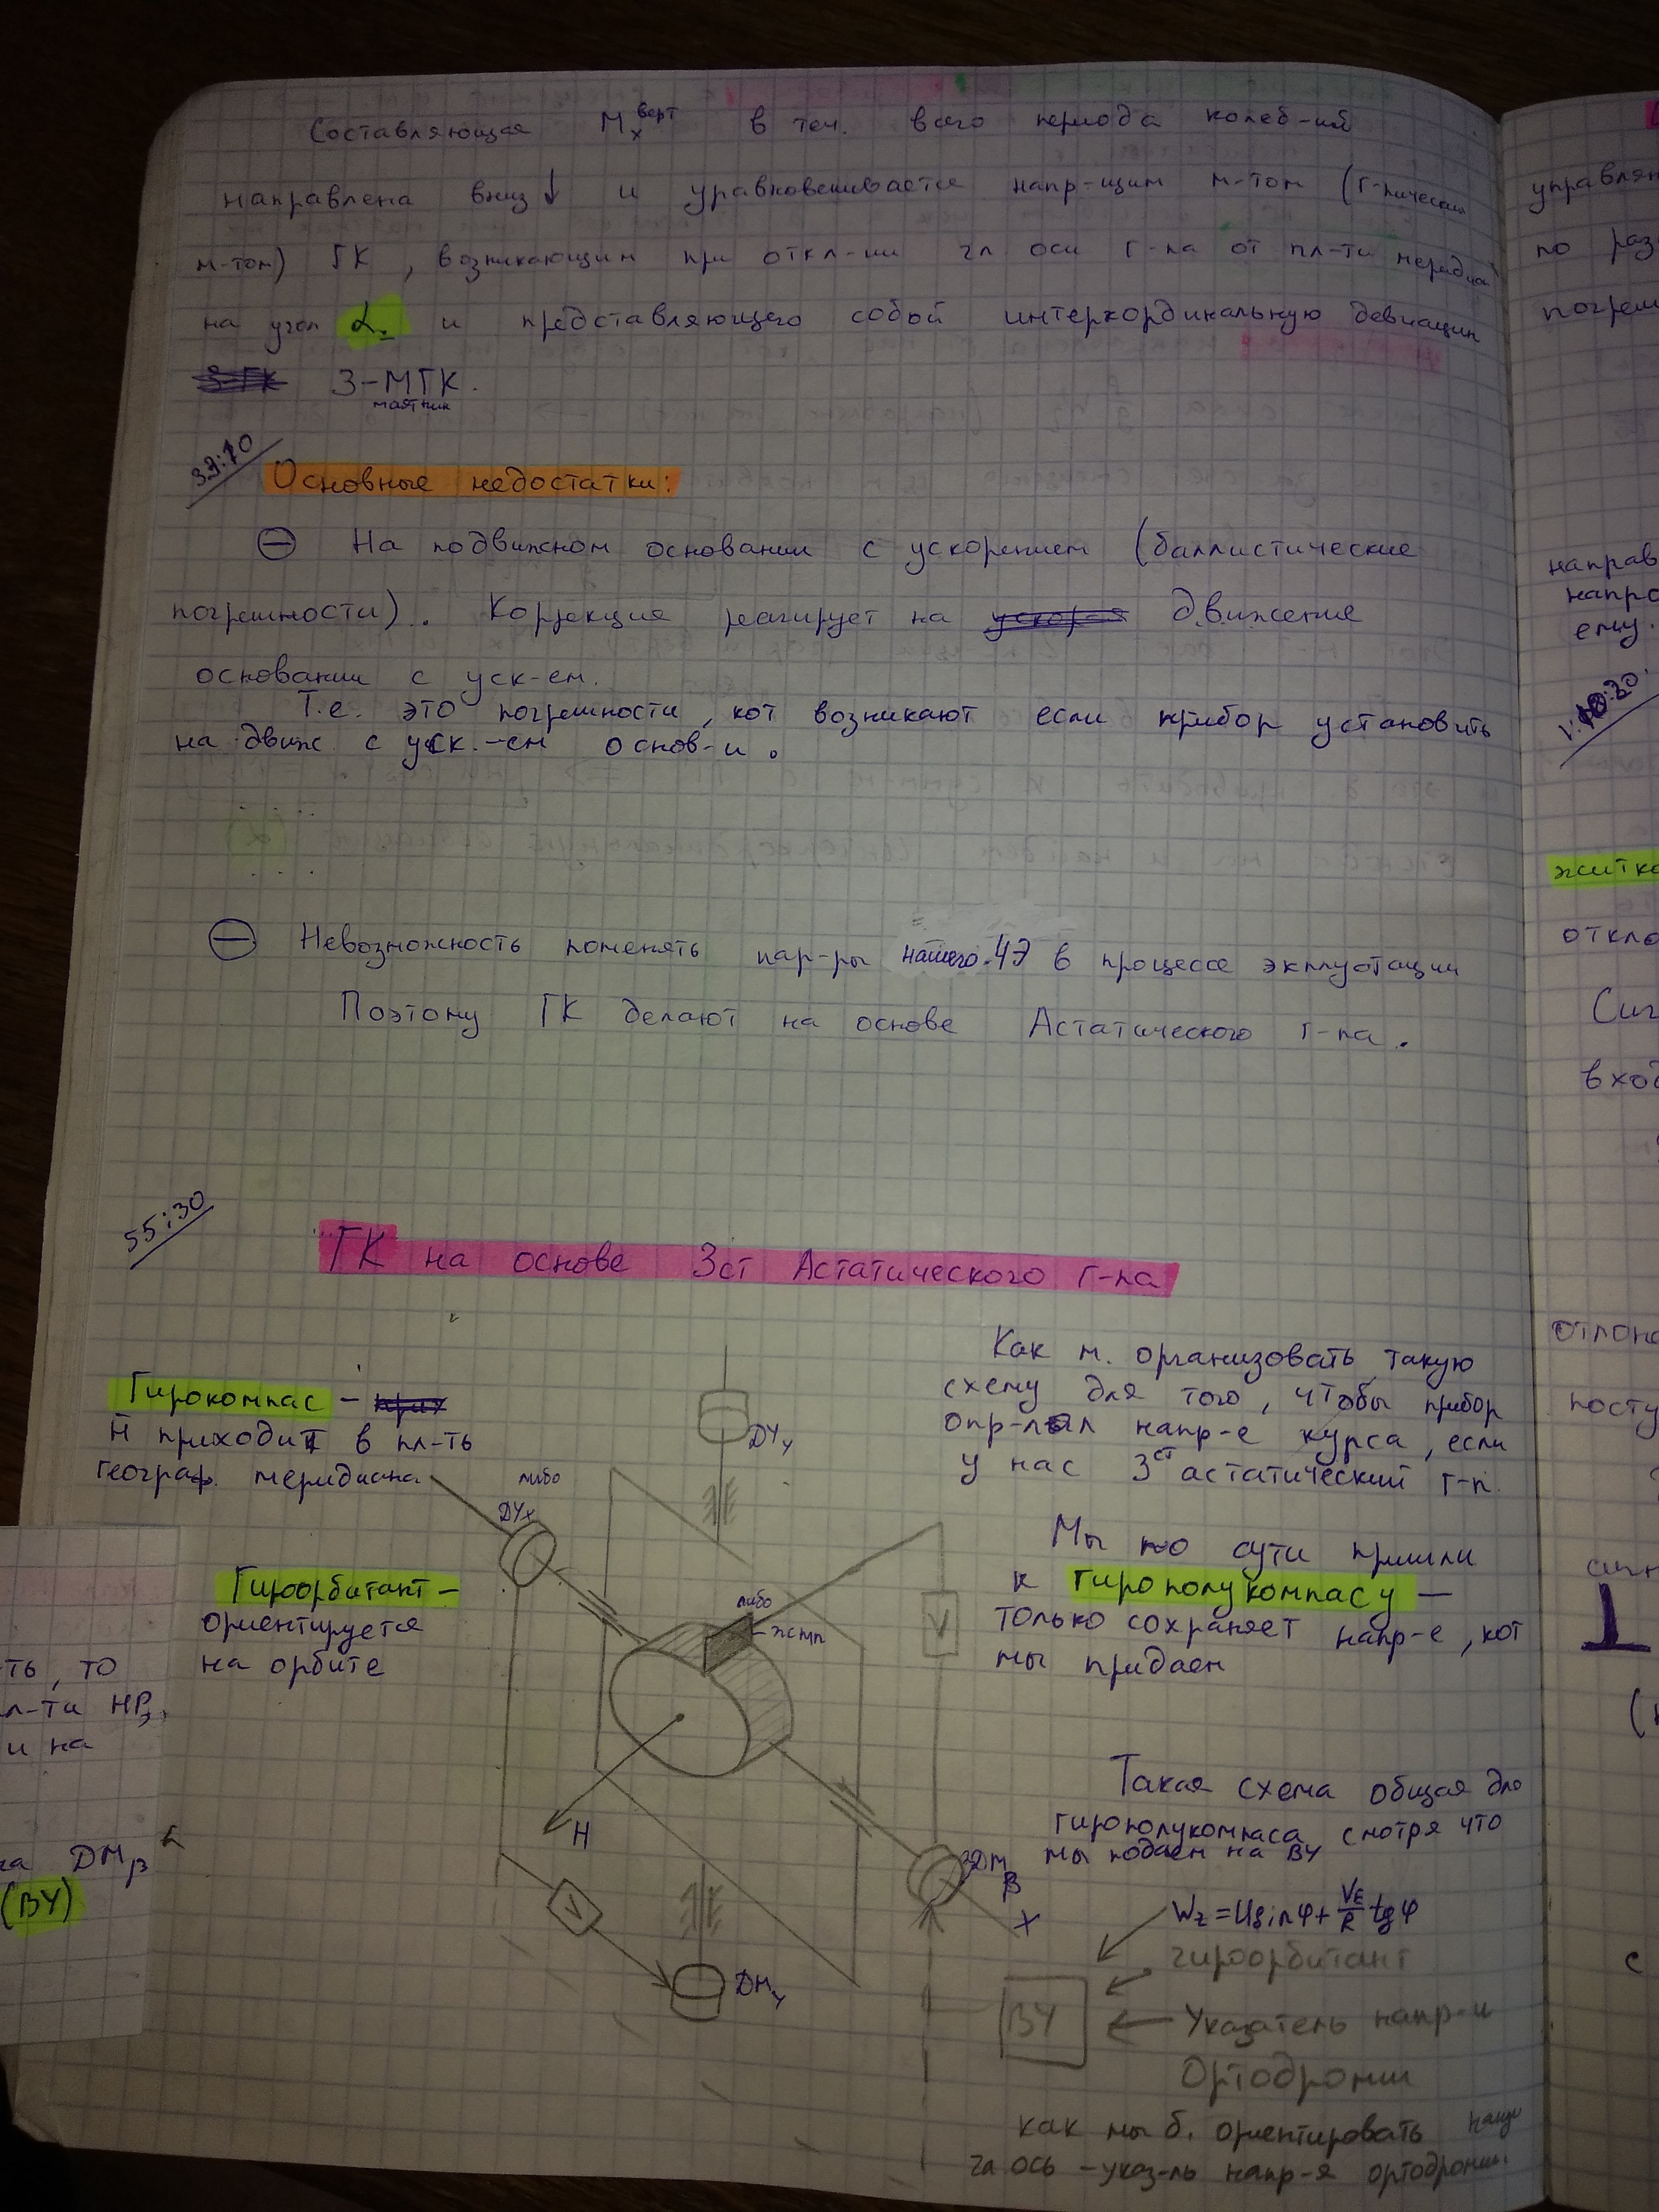 Составляющая Mₓверт в теч. всего периода колеб-ий
направлена вниз↓ и уравновешивается напр-щим м-том (г-пическим
м-том) ГК, возникающим при откл-ии гл оси г-па от пл-ти меридиа
на угол α₂ и представляющего собой интеркордикальную девиацию
3-МГК.
маятник
33:10
Основные недостатки:
⊖ На подвижном основании с ускорением (баллистические
погрешности). Коррекция реагирует на движение
основании с уск-ем.
Т.е. это погрешности, кот возникают если прибор установить
на движ. с уск.-ем основ-и.
⊖ Невозможность поменять пар-ры нашего ЧЭ в процессе экплуотации
Поэтому ГК делают на основе Астатического г-па.
55:30
ГК на основе 3ст Астатического г-па
Как м. организовать такую
схему для того, чтобы прибор
опр-лял напр-е курса, если
у нас 3ст астатический г-п.
Гирокомпас -
H приходит в пл-ть
географ. меридиана
либо
ДУx
ДУу
Мы по сути пришли
к гирополукомпасу —
только сохраняет напр-е, кот
мы придаем
Гироорбитант —
ориентируется
на орбите
либо
- жмп
V
H
V
ДМу
ДМ
β
X
Такая схема общая для
гирополукомпаса, смотря что
мы подаем на ВУ
Wz = Usinφ + VE/R tgφ
гироорбитант
ВУ
Указатель напр-и
Ортодромии
как мы б. ориентировать нашу
гл ось - указ-ль напр-я ортодромии.
ть, то
л-ти НР,
и на
ка ДМβ
(ВУ)
управлян
по раз
погреш
направ
напро
ему.
житко
откло
Сиг
вход
отлоно
посту
сигн
⊥
(
с